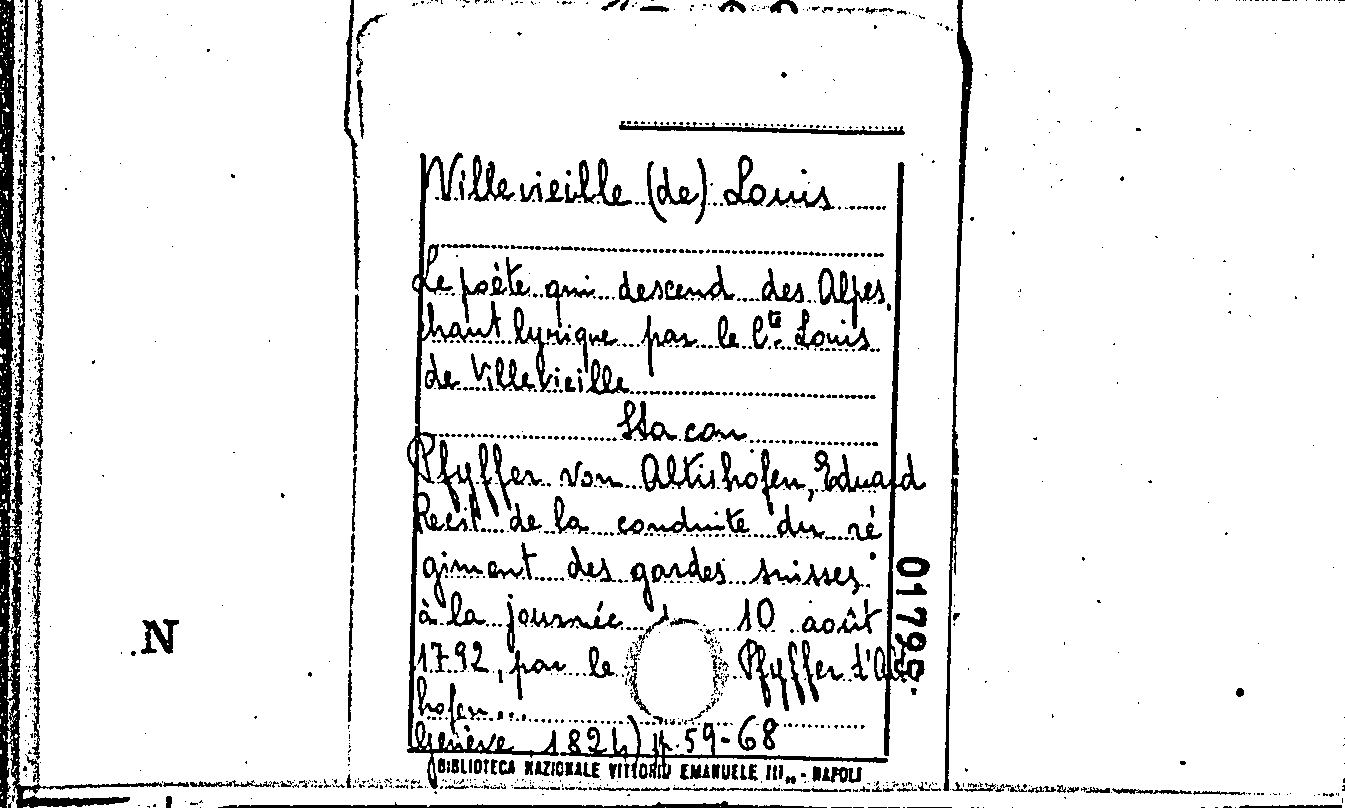 Villevieille (de) Louis
Le poète qui descend des Alpes,
chant lyrique par le Cte. Louis
de Villevieille
Sta con
Pfyffer von Altishofen, Eduard
Récit de la conduite du ré
giment des gardes suisses
à la journée 10 août
1792, par le Pfyffer d'Altis
hofen...
Genève 1824) p. 59-68
BIBLIOTECA NAZIONALE VITTORIO EMANUELE III,, - NAPOLI
N